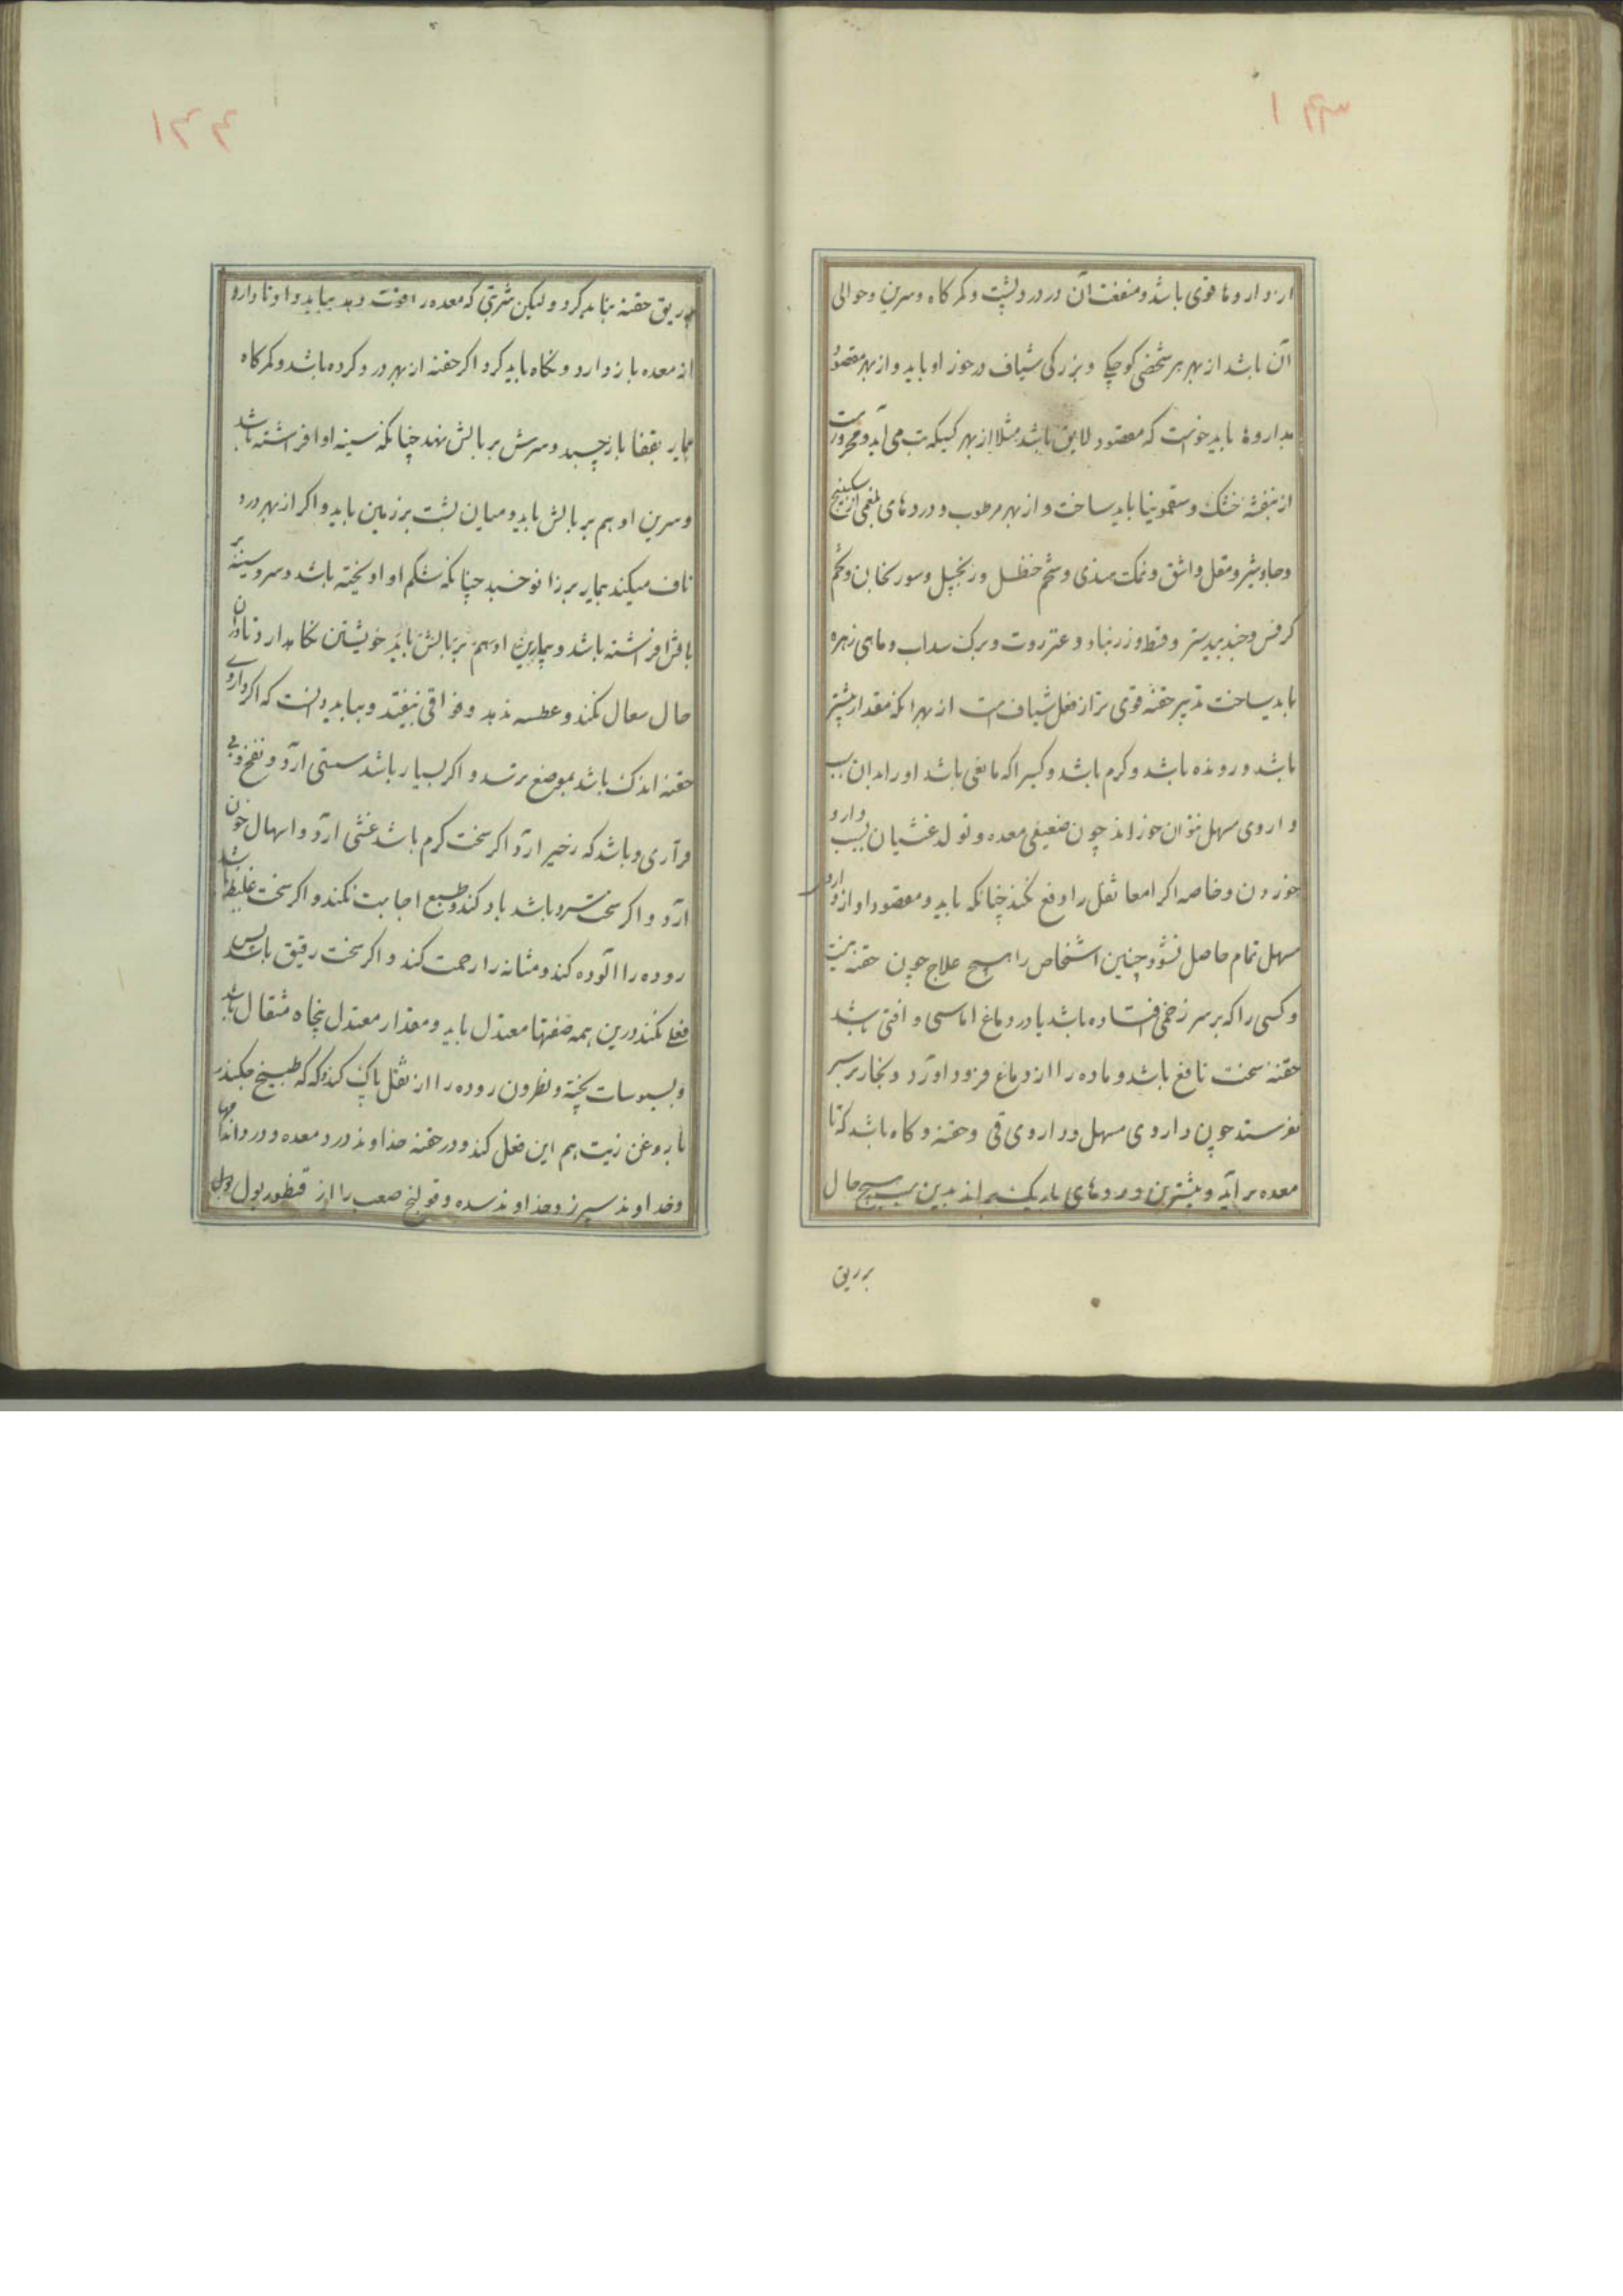 ۱۴۳
از داروها قوی باشد و منفعت آن در درد پشت و کمرکاه و سرین و حوالی
آن باشد از بهر هر شخصی کوچکی و بزرکی شیاف در خور او باید و از بهر مقصود
بداروها باید خواست که مقصود لایق باشد مثلا از بهر کسیکه تب می آید و محرورست
از بنفشه خشک و سقمونیا باید ساخت و از بهر مرطوب و دردهای بلغمی از سکبینج
و جاوشیر و مقل و اشق و نمک هندی و شحم حنظل و زنجبیل و سورنجان و تخم
کرفس و جندبیدستر و قسط و زرنباد و عنزروت و برک سداب و ماهی زهره
باید ساخت تدبیر حقنه قوی تر از فعل شیاف است از بهر انکه مقدار بیشتر
باشد و رونده باشد و کرم باشد و کسیرا که مانعی باشد او را بدان سبب
داروی مسهل نتوان خوراند چون ضعیفی معده و تولد غشیان بسبب دارو
خوردن و خاصه اکر امعا ثفل را دفع نکند چنانکه باید و مقصود او از داروی
مسهل تمام حاصل نشود چنین اشخاص را هیچ علاج چون حقنه نیست
و کسی را که بر سر زخمی افتاده باشد یا در دماغ اماسی و افتی باشد
حقنه سخت نافع باشد و ماده را از دماغ فرود اورد و بخار بر سر
نفرستد چون داروی مسهل و داروی قی و حقنه و کاه باشد که تا
معده بر آید و بیشترین در رودهای باریک بدین سبب هیچ حال
بر ریق
۱۴۴
بر ریق حقنه نباید کرد و لیکن شربتی که معده را قوت دهد بباید داد تا دارو
از معده باز دارد و نکاه باید کرد اکر حقنه از بهر درد کرده باشد و کمرکاه
بیمار بقفا باز چسبد و سرش بر بالش نهد چنانکه سینه او افراشته باشد
و سرین او هم بر بالش باید و میان پشت بر زمین باید و اکر از بهر درد
ناف میکند بیمار بر زانو خسبد چنانکه شکم او اویخته باشد و سر و سینه بر
بالش افراشته باشد و بیمار او هم بر بالش باید خویشتن نکاه دارد تا دران
حال سعال نکند و عطسه ندهد و فواقی نیفتد و بباید دانست که اکر داروی
حقنه اندک باشد بموضع نرسد و اکر بسیار باشد سستی ارد و نفخ و بی
قراری و باشد که زحیر ارد اکر سخت کرم باشد غشی ارد و اسهال خون
ارد و اکر سخت سرد باشد باد کند و طبع اجابت نکند و اکر سخت غلیظ باشد
روده را الوده کند و مثانه را زحمت کند و اکر سخت رقیق باشد بس
فعلی نکند درین همه صفتها معتدل باید و مقدار معتدل پنجاه مثقال باشد
و سبوسات پخته و نطرون روده را از ثفل پاک کند و که که طبیخ چکندر
با روغن زیت هم این فعل کند و در حقنه خداوند درد معده و درد اندامها
و خداوند سپرز و خداوند سده و قولنج صعب را از قنطوریون